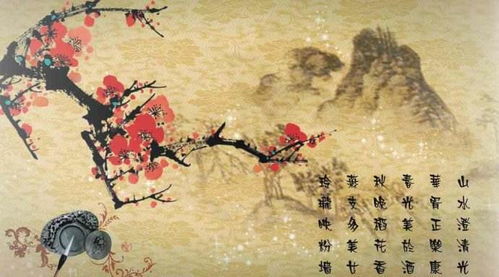 山水澄清光
華眉正樂康
春光美於酒
秋晚稻花香
支多美廿
玲瓏映粉墻